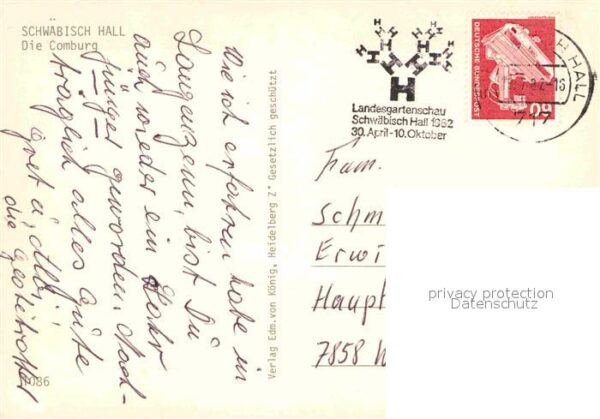 SCHWÄBISCH HALL
Die Comburg
Wie ich erfahren habe in
Langenzenn, bist Du
auch wieder ein Jahr
jünger geworden. Nach-
träglich alles Gute
Gret u.
die
Verlag Edm.von König, Heidelberg Z* Gesetzlich geschützt
Landesgartenschau
Schwäbisch Hall 1982
30. April-10. Oktober
DEUTSCHE BUNDESPOST
60
H HALL
Fam.
Schm
Erwi
Haupt
7858 W
privacy protection
Datenschutz